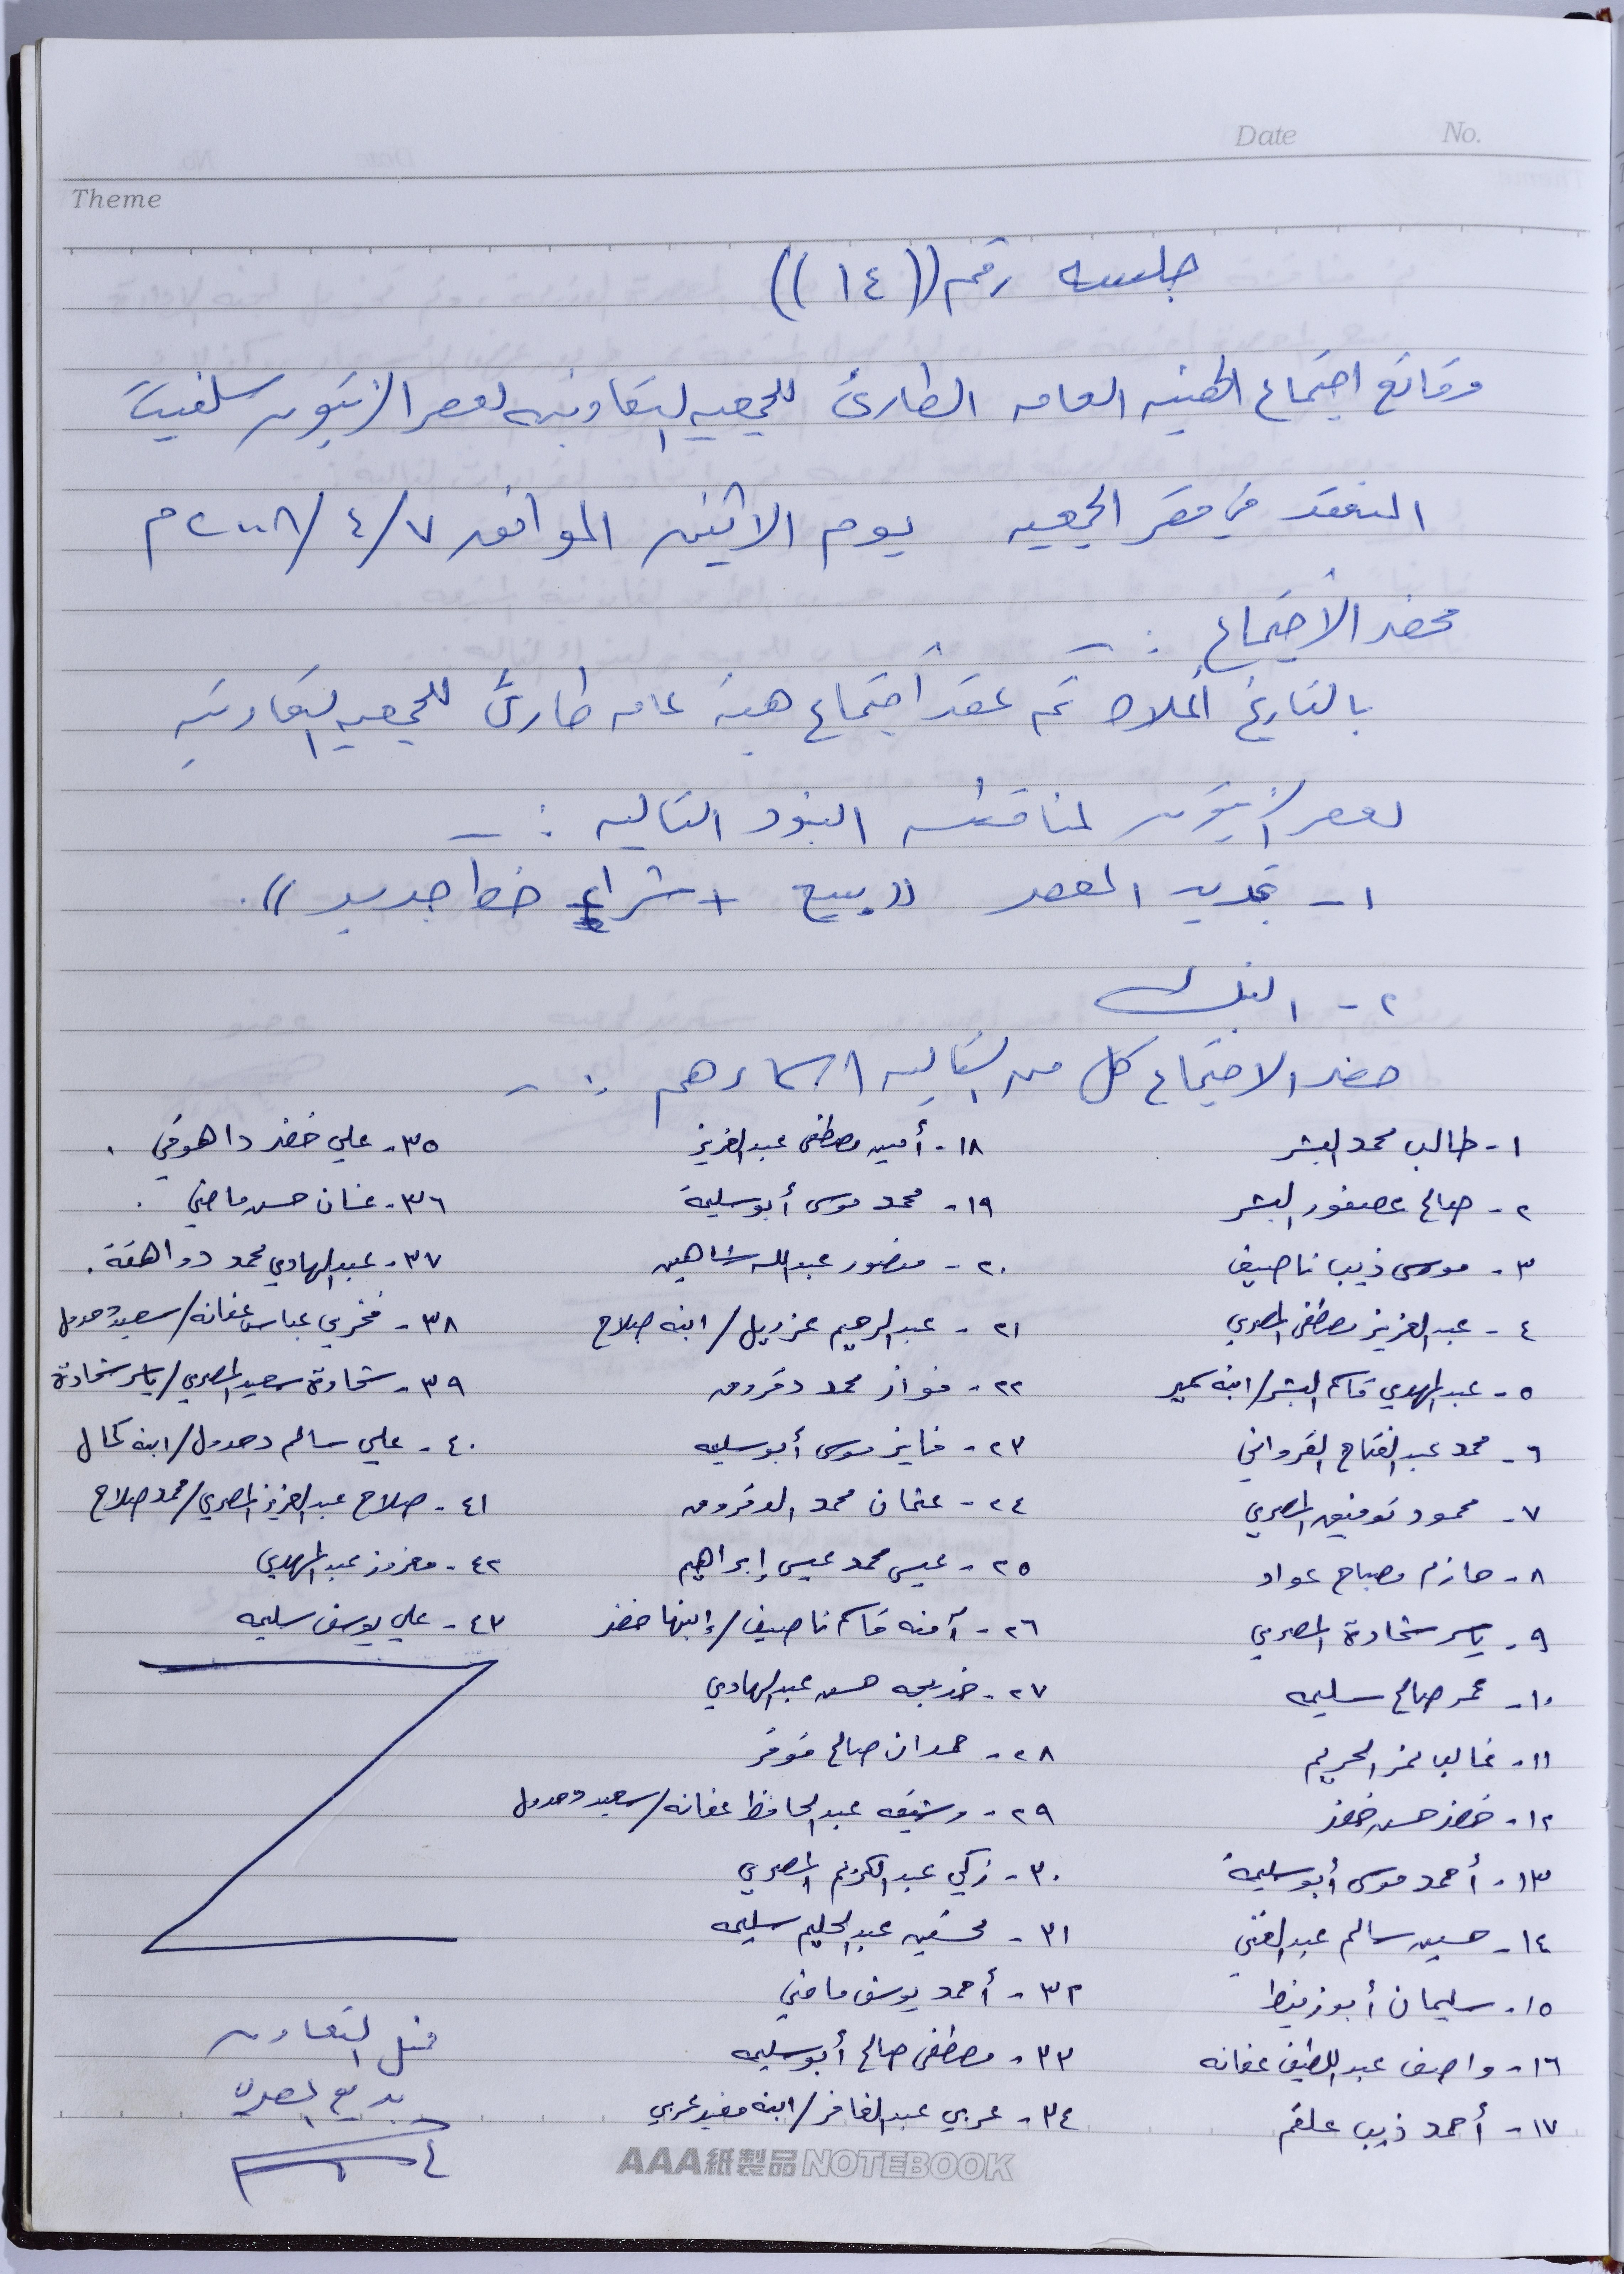 Date No.
Theme
جلسه رقم ((١٤))
وقائع اجتماع الهيئه العامه الطارئ للجمعيه التعاونيه لعصر الزيتون سلفيت
المنعقد في مقر الجمعيه يوم الاثنين الموافق ٢٠٠٨/٤/٧م
محضر الأجتماع :-
بالتاريخ أعلاه تم عقد أجتماع هيئه عامه طارئ للجمعيه التعاونيه
لعصر الزيتون لمناقشه البنود التاليه :-
١- تجديد المعصره ((بيع + شراء خط جديد)).
٢- البنك
حضر الاجتماع كل من التاليه اسماءهم :-
١- طالب محمد البشر
٢- صالح عصفور البشر
٣- موسى ذيب ناصيف
٤- عبد العزيز مصطفى المصري
٥- عبد المهدي قاسم البشر/ابنه سمير
٦- محمد عبد الفتاح القرواني
٧- محمود توفيق المصري
٨- حازم مصباح عواد
٩- ياسر شحادة المصري
١٠- عمر صالح سليمه
١١- غالب نمر الحريم
١٢- خضر حسن خضر
١٣- أحمد موسى أبو سليمة
١٤- حسين سالم عبد الغني
١٥- سليمان أبو زنيط
١٦- واصف عبد اللطيف عفانه
١٧- أحمد ذيب علقم
١٨- أمين مصطفى عبد العزيز
١٩- محمد موسى أبو سليمة
٢٠- منصور عبد الله شاهين
٢١- عبد الرحيم عزريل/ابنه صلاح
٢٢- فواز محمد دقروق
٢٣- فايز موسى أبو سليمه
٢٤- عثمان محمد الدقروق
٢٥- عيسى محمد عيسى إبراهيم
٢٦- آمنه قاسم ناصيف/إبنها خضر
٢٧- خديجه حسن عبد الهادي
٢٨- حمدان صالح
٢٩- عبد الحافظ عفانه/سعيد دحدول
٣٠- زكي عبد الكريم المصري
٣١- عبد الحليم سليمه
٣٢- أحمد يوسف ماضي
٣٣- مصطفى صالح أبو سليمه
٣٤- عربي عبد الغافر/ابنه مفيد عربي
٣٥- علي خضر داهوقي.
٣٦- غسان حسن ماضي.
٣٧- عبد الهادي محمد دواهقة.
٣٨- فخري عباس عفانه/سعيد دحدول
٣٩- شحادة سعيد المصري/ياسر شحادة
٤٠- علي سالم دحدول/ابنه كمال
٤١- صلاح عبد العزيز المصري/محمد صلاح
٤٢- معزوز عبد المهدي
٤٣- علي يوسف سليمه
التعاون
AAA紙製品NOTEBOOK